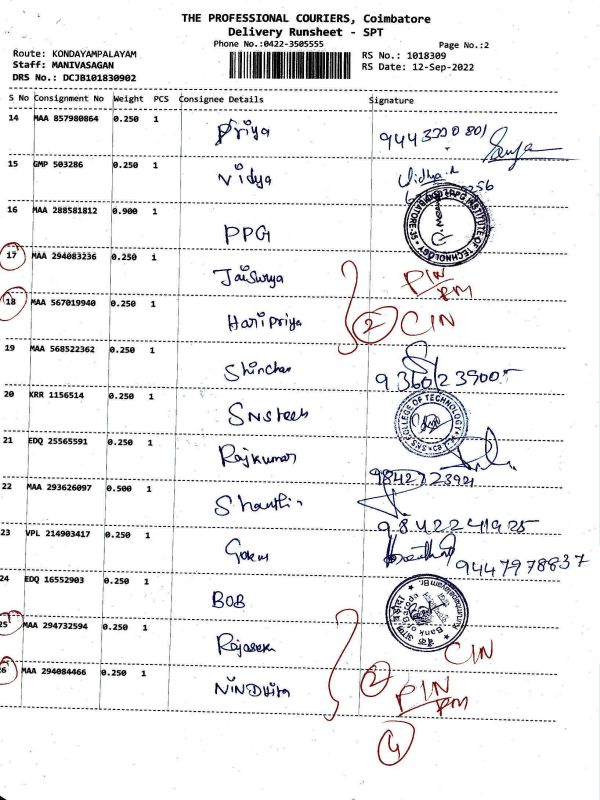 THE PROFESSIONAL COURIERS, Coimbatore
Delivery Runsheet - SPT
Phone No.:0422-3505555
Page No.:2
Route: KONDAYAMPALAYAM
Staff: MANIVASAGAN
DRS No.: DCJB101830902
RS No.: 1018309
RS Date: 12-Sep-2022
S No Consignment No Weight PCS Consignee Details Signature
14 MAA 857980864 0.250 1 Priya
15 GMP 503286 0.250 1 Vidya Vidhya
16 MAA 288581812 0.900 1 PPG PPG INSTITUTE OF TECHNOLOGY COIMBATORE-35
17 MAA 294083236 0.250 1 Jaisurya PIN
18 MAA 567019940 0.250 1 Haripriya 2 CIN
19 MAA 568522362 0.250 1 Shinchan
20 KRR 1156514 0.250 1 SNS tech SNS COLLEGE OF TECHNOLOGY
21 EDQ 25565591 0.250 1 Rajkumar
22 MAA 293626097 0.500 1 Shanthi 9842241925
23 VPL 214903417 0.250 1 Gokul 9447978837
24 EDQ 16552903 0.250 1 BOB Bank of
25 MAA 294732594 0.250 1 CIN
26 MAA 294084466 0.250 1 2 PIN
4